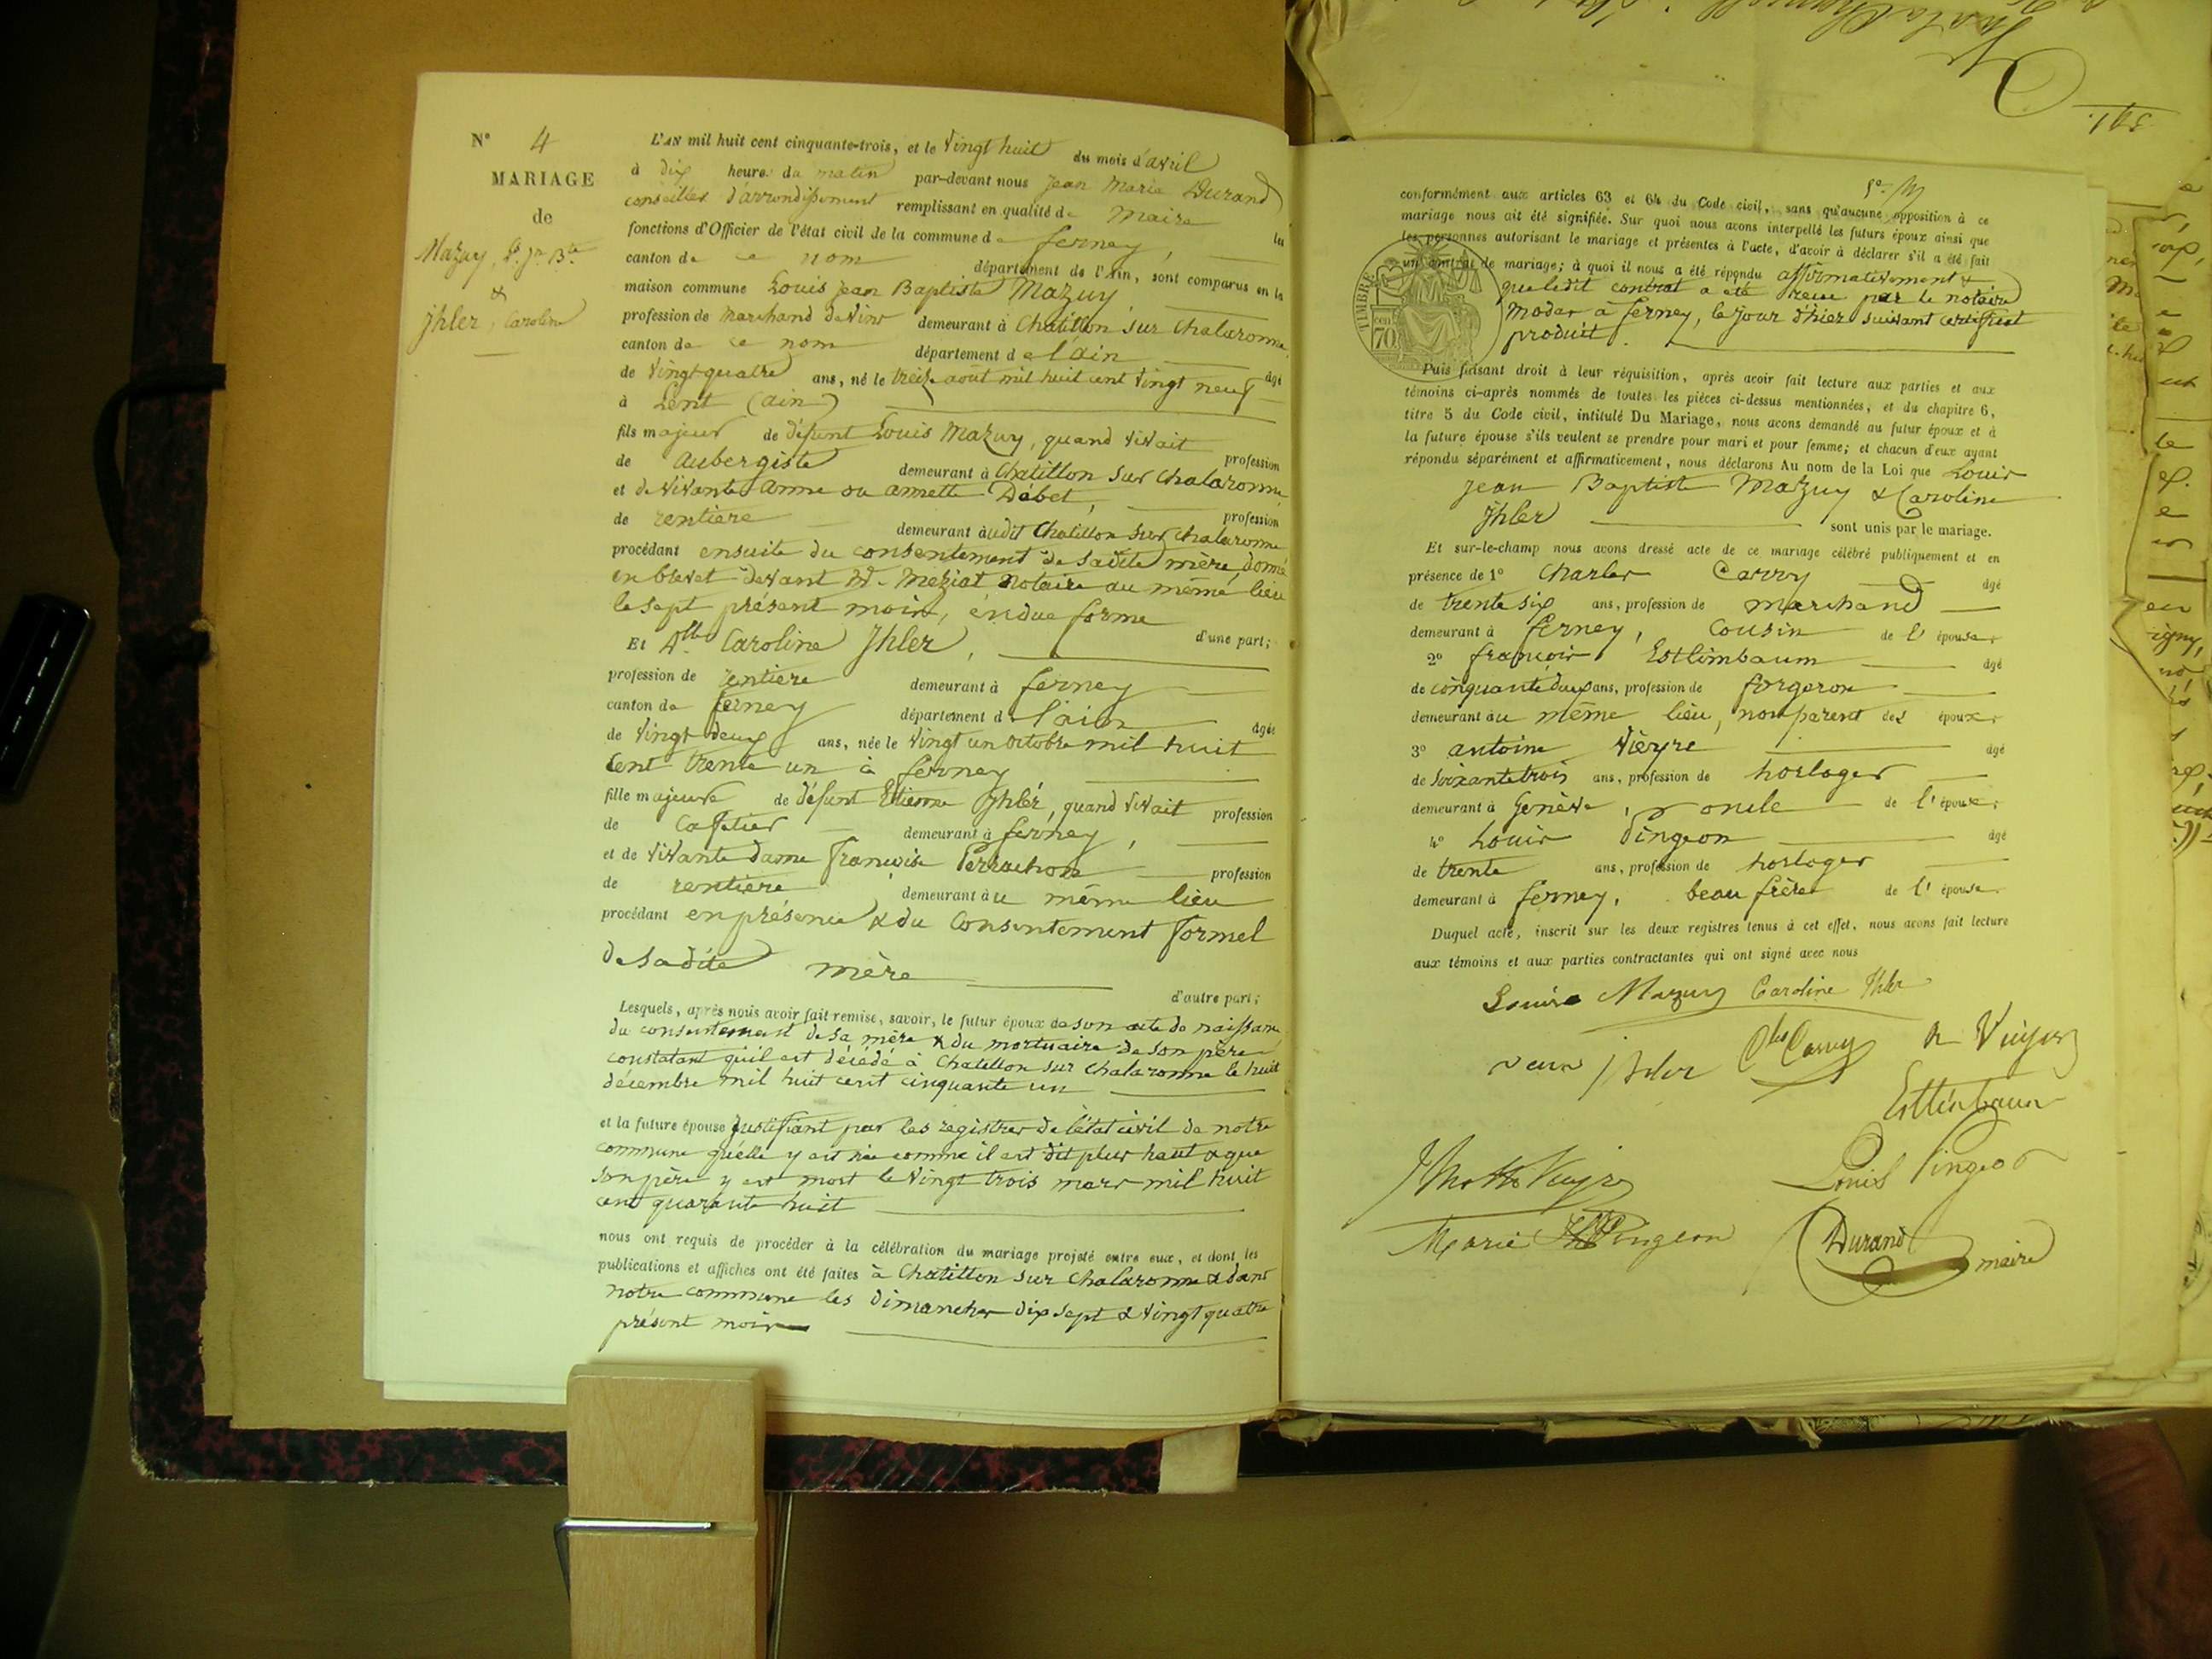 N° 4
MARIAGE
de
Mazuy, L. Jn Bte
&
Jhler, Caroline
L'AN mil huit cent cinquante-trois, et le Vingt huit du mois d'avril
à dix heures du matin par-devant nous Jean Marie Durand
conseiller d'arrondissement remplissant en qualité de Maire les
fonctions d'Officier de l'état civil de la commune de ferney,
canton de ce nom département de l'Ain, sont comparus en la
maison commune Louis jean Baptiste Mazuy
profession de Marchand de Vins demeurant à Chatillon sur Chalaronne,
canton de ce nom département de l'ain âgé
de Vingt quatre ans, né le treize août mil huit cent Vingt neuf
à Lent (ain)
fils majeur de défunt Louis Mazuy, quand Vivait profession
de Aubergiste demeurant à Chatillon sur Chalaronne
et de Vivante Anne ou annette Débet, profession
de rentière demeurant àudit Chatillon sur Chalaronne
procédant ensuite du consentement de sadite mère, donné
en brevet devant Me Meziat Notaire au même lieu
le sept présent mois, en due forme
d'une part;
Et Dlle Caroline Jhler,
profession de rentière demeurant à ferney
canton de ferney département de l'ain âgée
de Vingt deux ans, née le Vingt un octobre mil huit
Cent trente un à ferney
fille majeure de défunt Etienne Jhler, quand Vivait profession
de Cafetier demeurant à ferney,
et de Vivante dame Françoise Perrachon profession
de rentière demeurant àu même lieu
procédant en présence & du Consentement formel
de sadite mère
d'autre part;
Lesquels, après nous avoir fait remise, savoir, le futur époux de son acte de naissance
du consentement de sa mère & du mortuaire de son père
constatant qu'il est décédé à Chatillon sur Chalaronne le huit
décembre mil huit cent cinquante un
et la future épouse justifiant par les registres de l'état civil de notre
commune qu'elle y est née comme il est dit plus haut & que
son père y est mort le Vingt trois mars mil huit
cent quarante huit
nous ont requis de procéder à la célébration du mariage projeté entre eux, et dont les
publications et affiches ont été faites à Chatillon sur Chalaronne & dans
notre commune les dimanches dix sept & Vingt quatre
présent mois
conformément aux articles 63 et 64 du Code civil, sans qu'aucune opposition à ce
mariage nous ait été signifiée. Sur quoi nous avons interpellé les futurs époux ainsi que
les personnes autorisant le mariage et présentes à l'acte, d'avoir à déclarer s'il a été fait
un contrat de mariage; à quoi il nous a été répondu affirmativement &
que ledit contrat a été reçu par le notaire
Moder à ferney, le jour d'hier suivant certificat
produit.
TIMBRE
70
Puis faisant droit à leur réquisition, après avoir fait lecture aux parties et aux
témoins ci-après nommés de toutes les pièces ci-dessus mentionnées, et du chapitre 6,
titre 5 du Code civil, intitulé Du Mariage, nous avons demandé au futur époux et à
la future épouse s'ils veulent se prendre pour mari et pour femme; et chacun d'eux ayant
répondu séparément et affirmativement, nous déclarons Au nom de la Loi que Louis
Jean Baptiste Mazuy & Caroline
Jhler sont unis par le mariage.
Et sur-le-champ nous avons dressé acte de ce mariage célébré publiquement et en
présence de 1° Charles Carry âgé
de trente six ans, profession de marchand
demeurant à ferney, cousin de l'épouse
2° françois Estlimbaum âgé
de cinquante deux ans, profession de forgeron
demeurant àu même lieu, non parent des époux
3° antoine Vieyre âgé
de soixante trois ans, profession de horloger
demeurant à Genève, oncle de l'épouse
4° Louis Pingeon âgé
de trente ans, profession de horloger
demeurant à ferney, beau frère de l'épouse
Duquel acte, inscrit sur les deux registres tenus à cet effet, nous avons fait lecture
aux témoins et aux parties contractantes qui ont signé avec nous
Louis Mazuy Caroline Jhler
veuve jhler Chs Carry
Esttinbaum
Louis Pingeon
Marie Pingeon
Durand maire